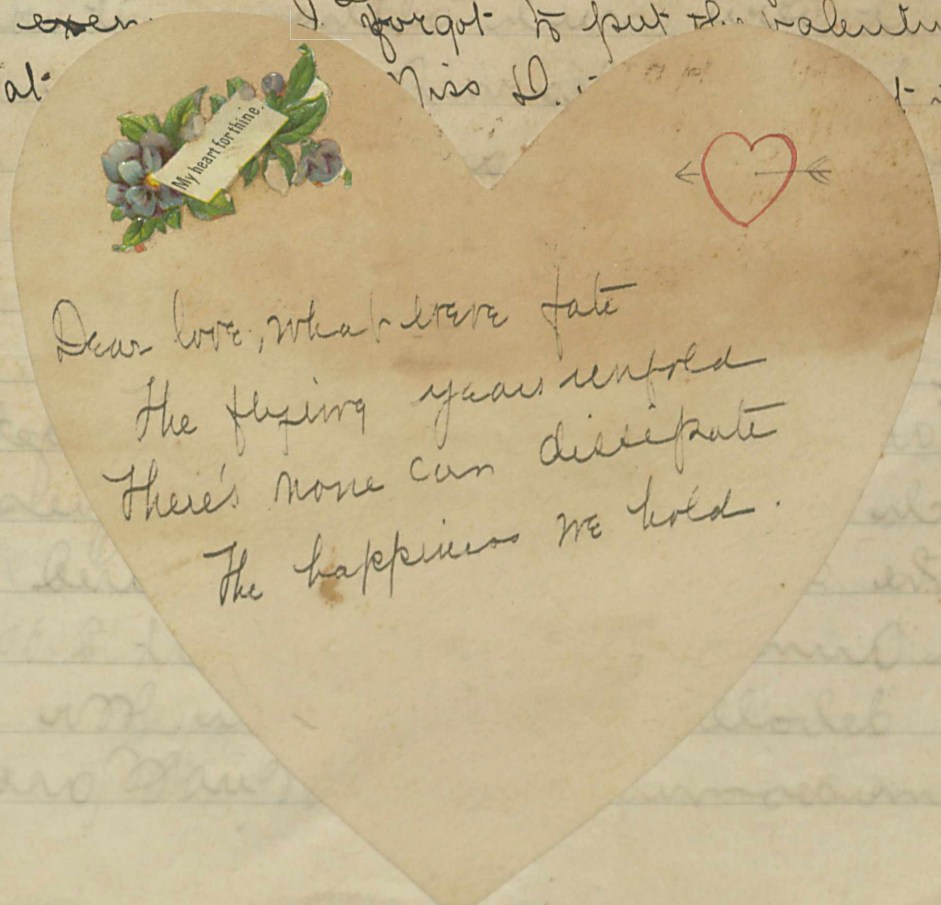 I forgot to put the valentin
Miss D.
My heart for thine.
Dear love, whatever fate
The flying years unfold
There's none can dissipate
The happiness we hold.